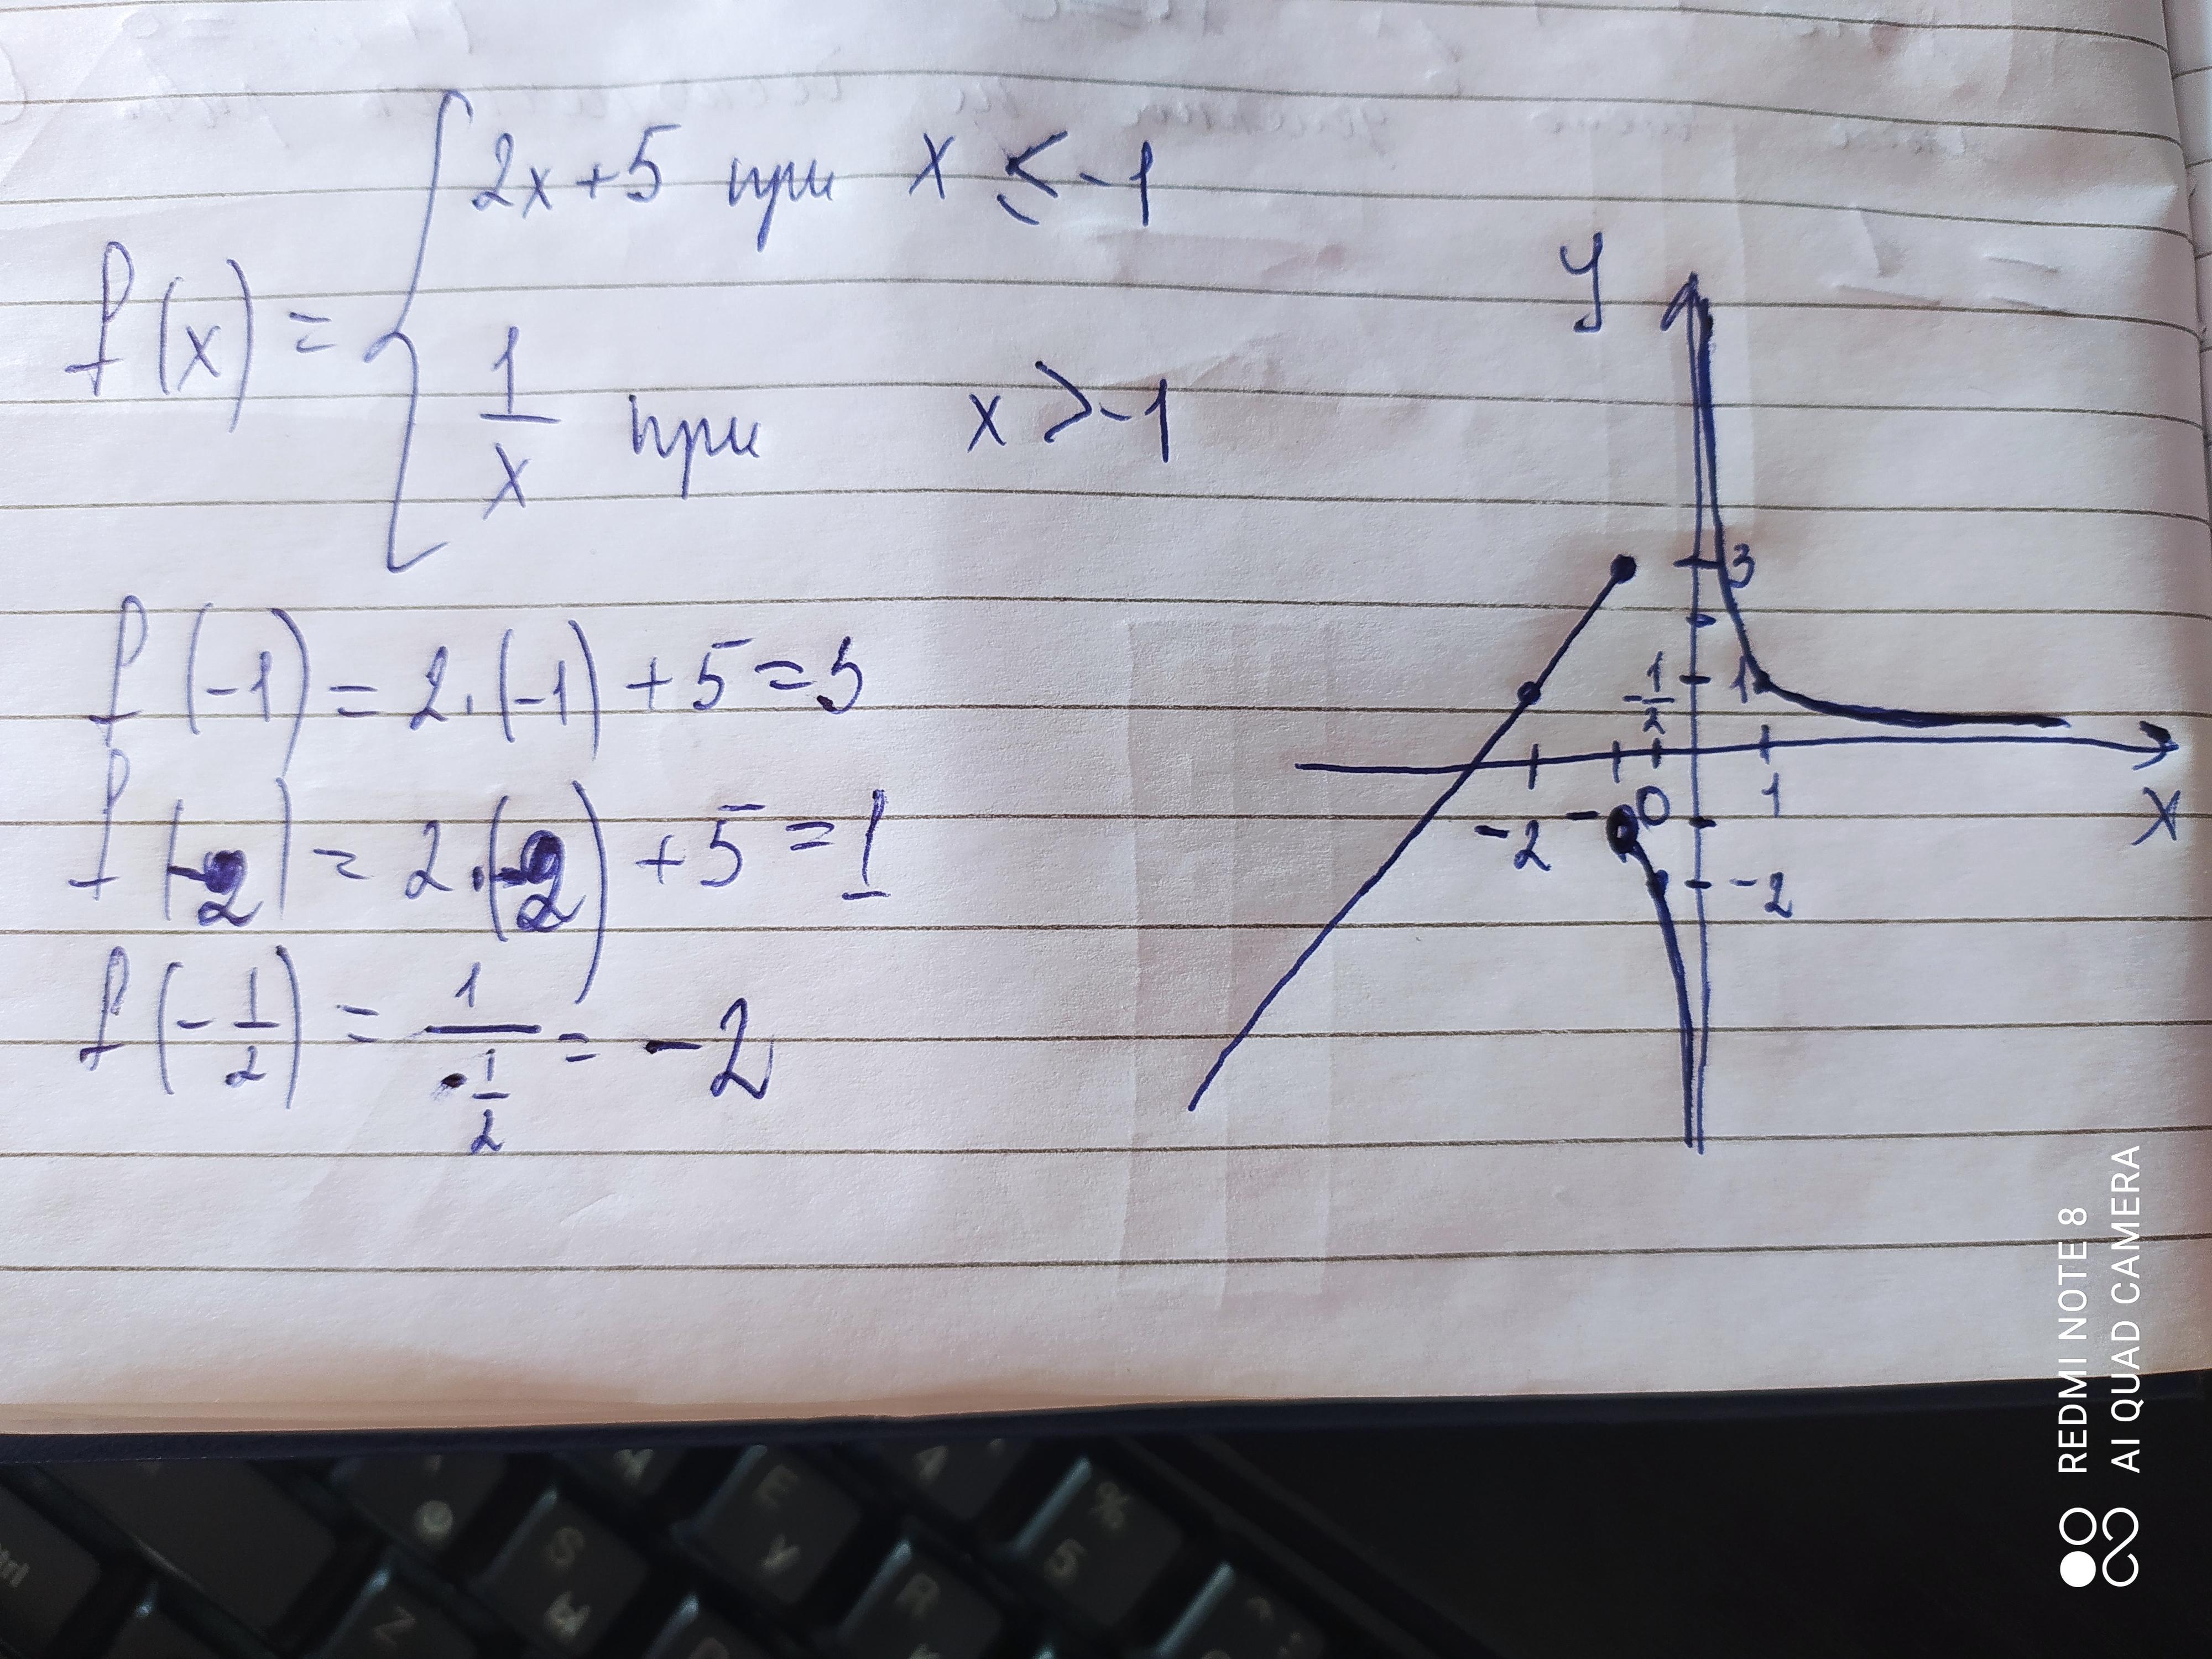 f(x) = { 2x+5 при x ≤ -1
1/x при x > -1
f(-1) = 2·(-1)+5=3
f(-2) = 2·(-2)+5=1
f(-1/2) = 1/(-1/2) = -2
y
3
-1/2 1
-2 0 1
x
-2
REDMI NOTE 8
AI QUAD CAMERA
E
4
%
5
S
Ы
У
R
Z